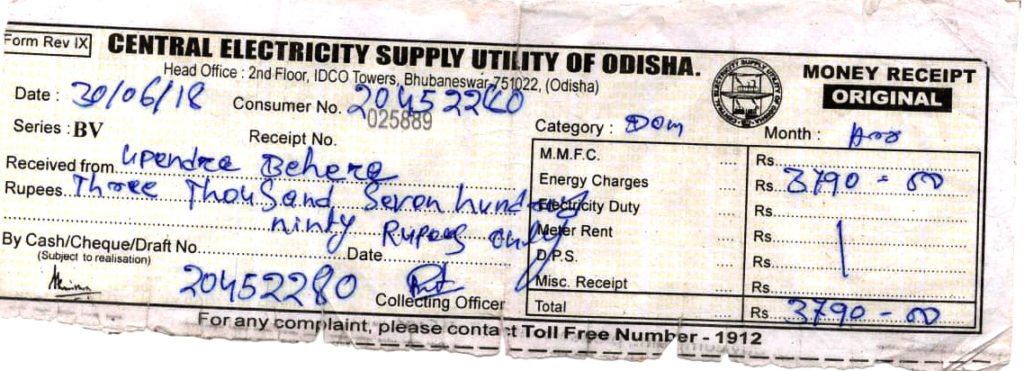 Form Rev IX
CENTRAL ELECTRICITY SUPPLY UTILITY OF ODISHA.
Head Office : 2nd Floor, IDCO Towers, Bhubaneswar-751022, (Odisha)
MONEY RECEIPT
ORIGINAL
Date : 30/06/18 Consumer No. 20452280
025889
Series : BV Receipt No.
Category : Dom Month :
Received from Upendra Behera
Rupees Three Thousand Seven hundred
ninty Rupees only
By Cash/Cheque/Draft No. Date
(Subject to realisation)
20452280 Collecting Officer
M.M.F.C. .... Rs.
Energy Charges .... Rs. 3790 - 00
Electricity Duty .... Rs.
Meter Rent .... Rs.
D.P.S. .... Rs.
Misc. Receipt .... Rs.
Total .... Rs. 3790 - 00
For any complaint, please contact Toll Free Number - 1912